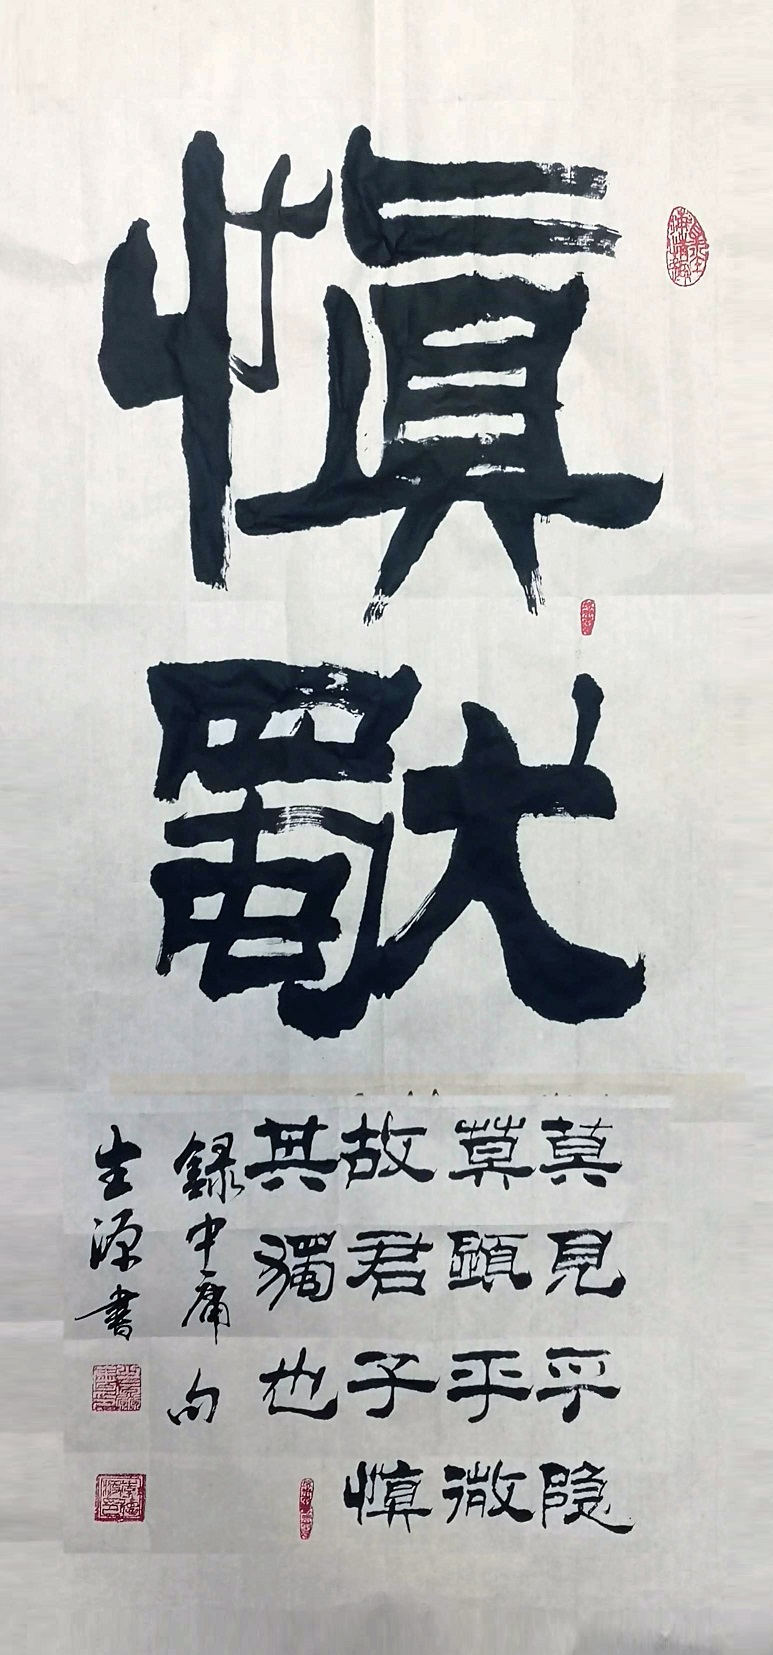 慎
獨
莫見乎隐
莫顯乎微
故君子慎
其獨也
録中庸句
生源書